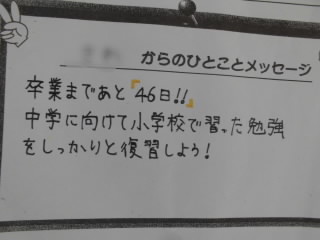 からのひとことメッセージ
卒業まであと『46日!!』
中学に向けて小学校で習った勉強
をしっかりと復習しよう!